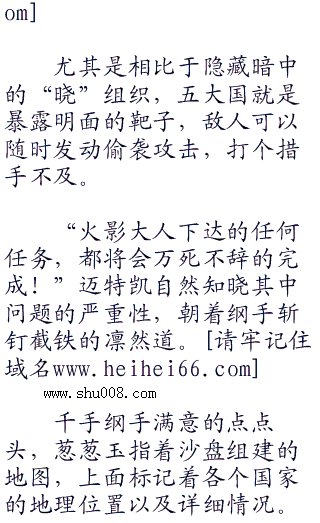 om]
尤其是相比于隐藏暗中
的“晓”组织，五大国就是
暴露明面的靶子，敌人可以
随时发动偷袭攻击，打个措
手不及。
“火影大人下达的任何
任务，都将会万死不辞的完
成！”迈特凯自然知晓其中
问题的严重性，朝着纲手斩
钉截铁的凛然道。[请牢记住
域名www.heihei66.com]
www.shu008.com
千手纲手满意的点点
头，葱葱玉指着沙盘组建的
地图，上面标记着各个国家
的地理位置以及详细情况。